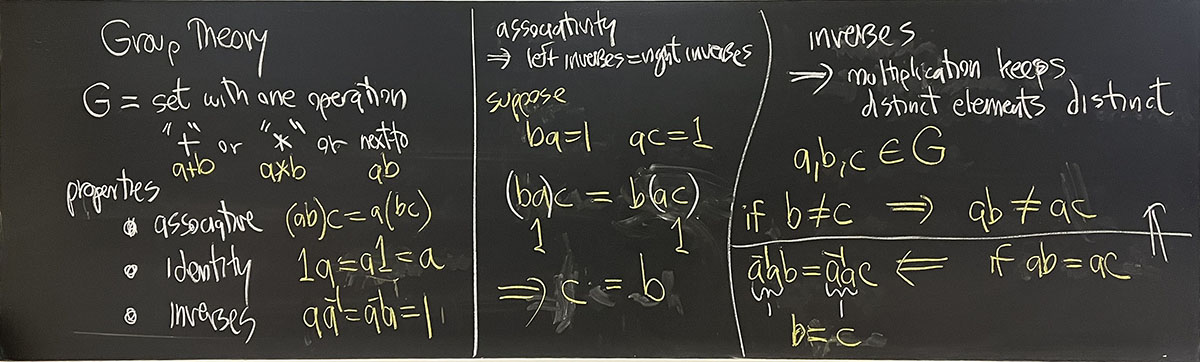 Group Theory
G = set with one operation
"+" or "*" or next to
a+b a*b ab
properties
associative (ab)c = a(bc)
identity 1a = a1 = a
inverses aa⁻¹ = a⁻¹a = 1
associativity
⇒ left inverses = right inverses
suppose
ba=1 ac=1
(ba)c = b(ac)
1 1
⇒ c = b
inverses
⇒ multiplication keeps
distinct elements distinct
a,b,c ∈ G
if b≠c ⇒ ab≠ac ⇑
a⁻¹ab = a⁻¹ac ⇐ if ab = ac
1 1
b = c